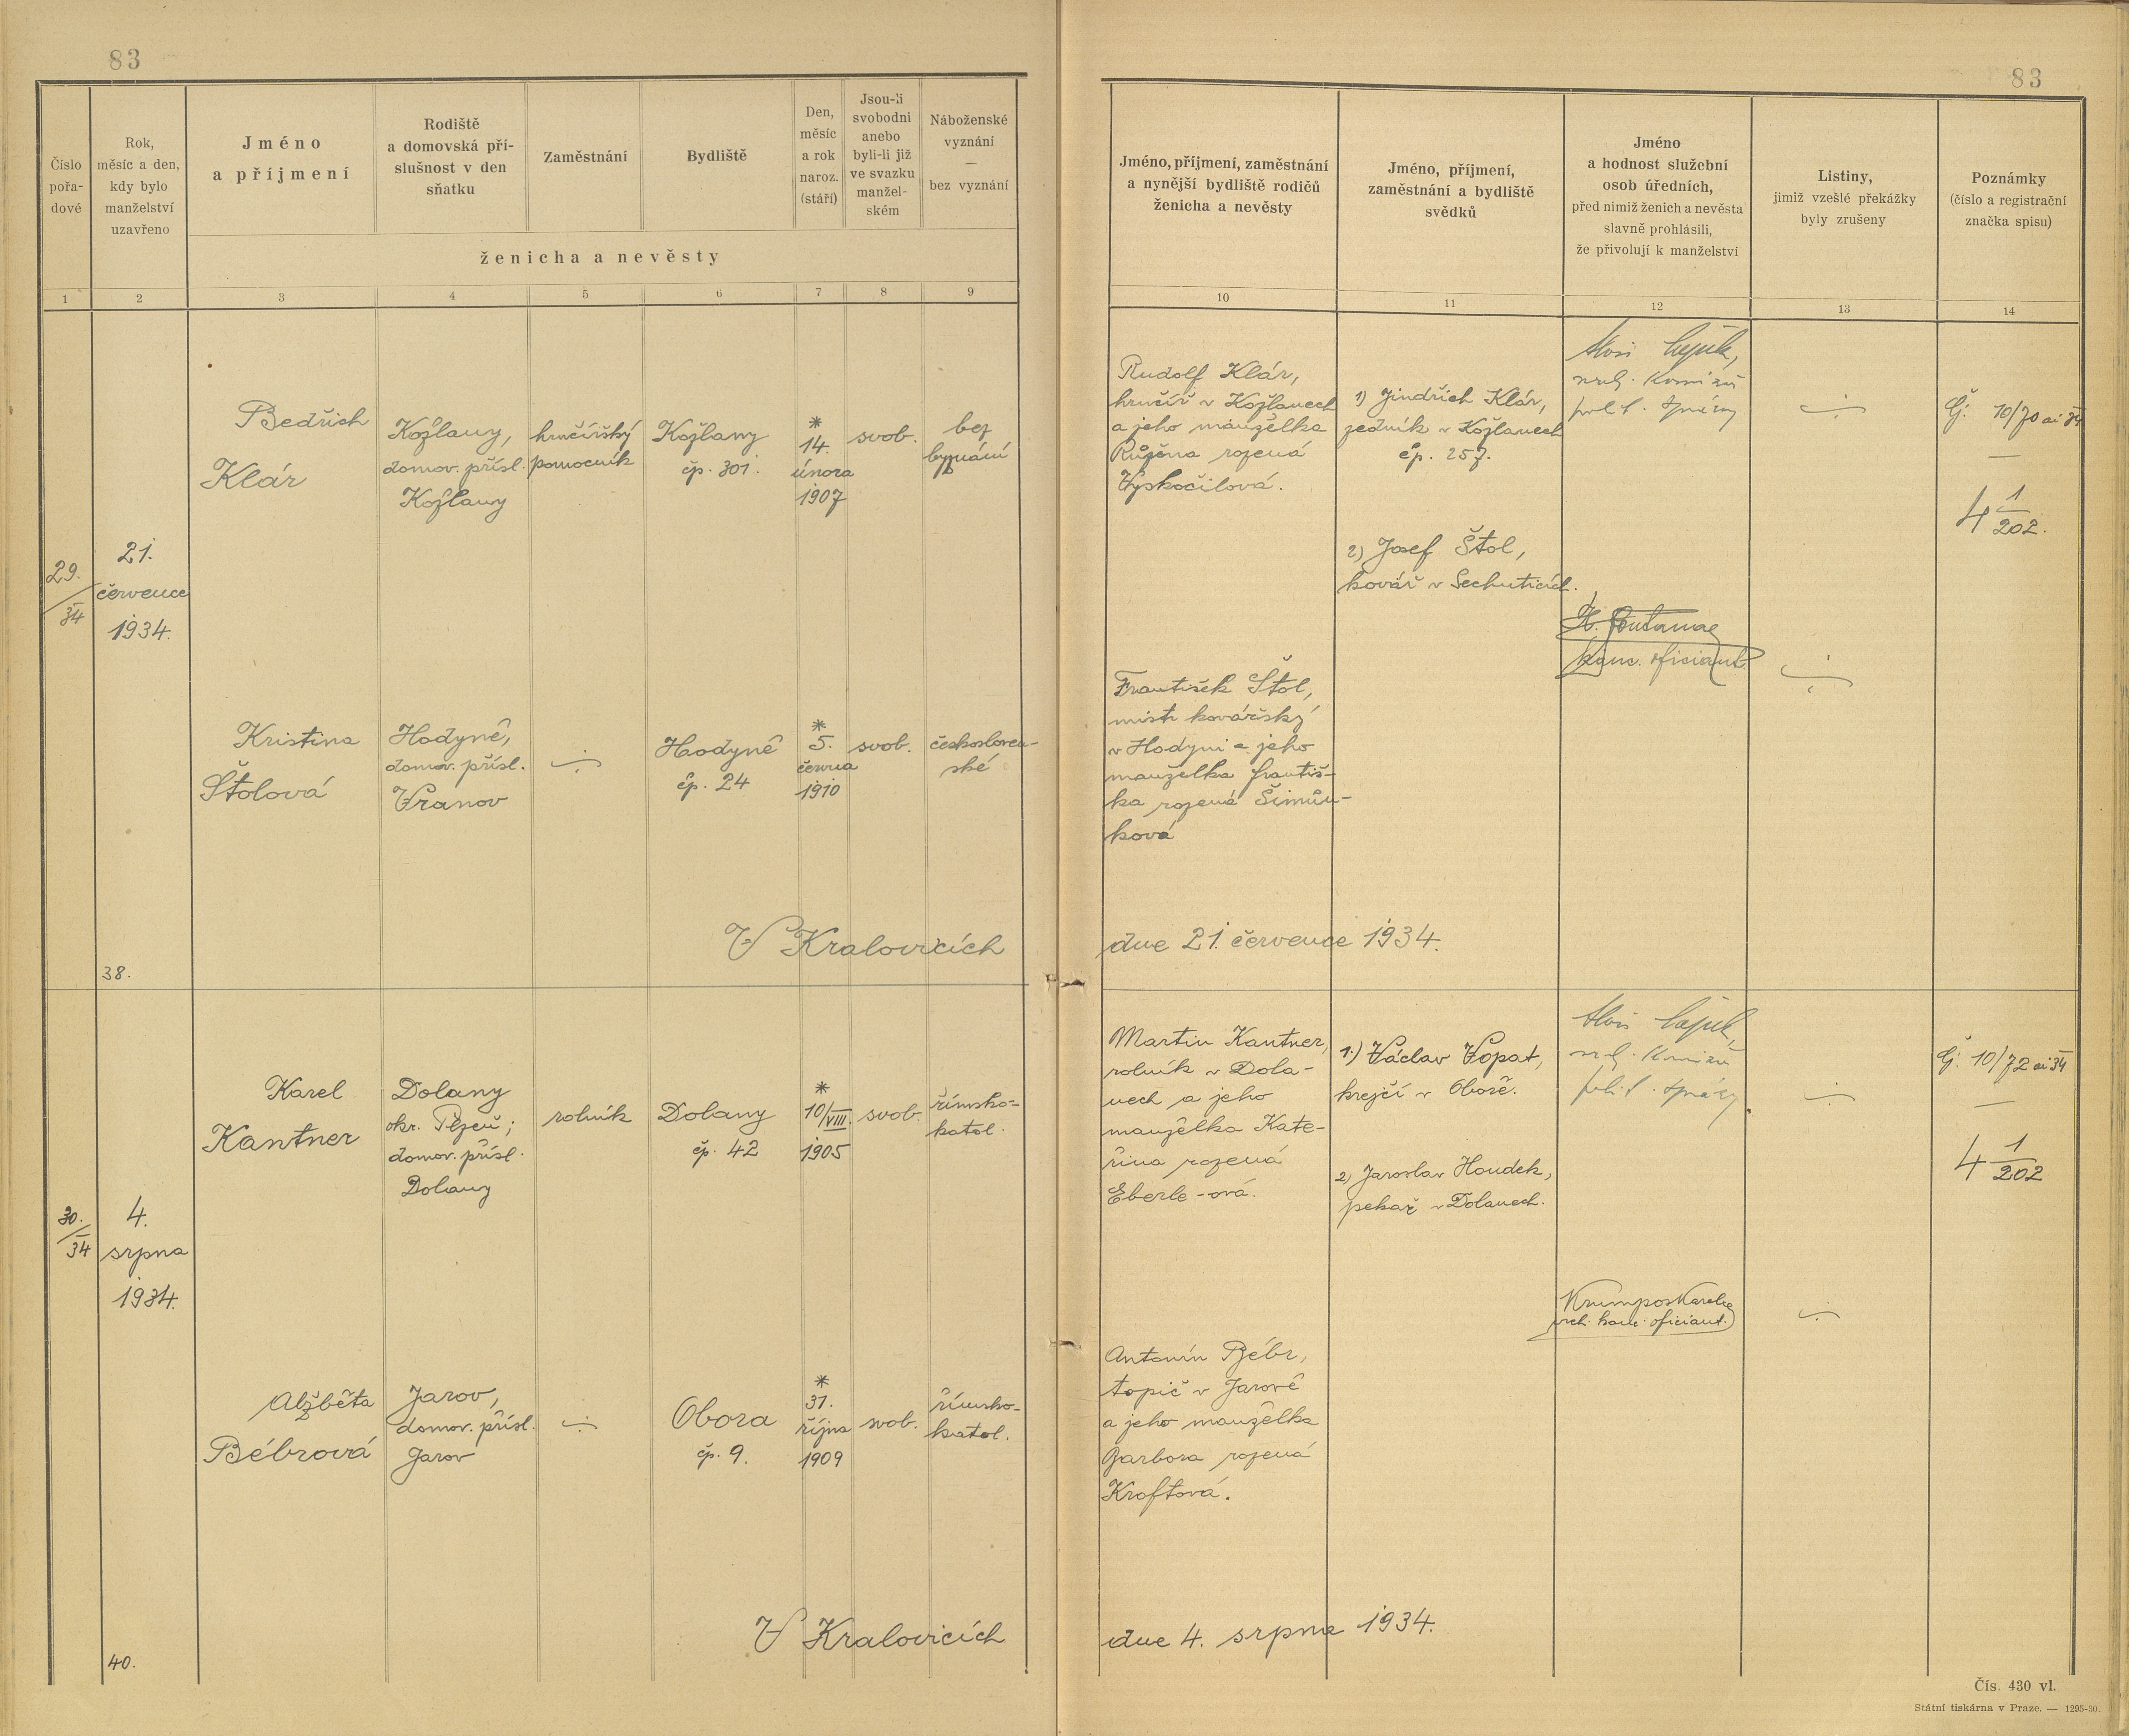 83
83
Číslo
pořa-
dové
Rok,
měsíc a den,
kdy bylo
manželství
uzavřeno
Jméno
a příjmení
Rodiště
a domovská pří-
slušnost v den
sňatku
Zaměstnání
Bydliště
Den,
měsíc
a rok
naroz.
(stáří)
Jsou-li
svobodni
anebo
byli-li již
ve svazku
manžel-
ském
Náboženské
vyznání
—
bez vyznání
ženicha a nevěsty
Jméno, příjmení, zaměstnání
a nynější bydliště rodičů
ženicha a nevěsty
Jméno, příjmení,
zaměstnání a bydliště
svědků
Jméno
a hodnost služební
osob úředních,
před nimiž ženich a nevěsta
slavně prohlásili,
že přivolují k manželství
Listiny,
jimiž vzešlé překážky
byly zrušeny
Poznámky
(číslo a registrační
značka spisu)
1 2 3 4 5 6 7 8 9 10 11 12 13 14
29.
34
21.
července
1934.
Bedřich
Klár
Kožlany,
domov. přísl.
Kožlany
hrnčířský
pomocník
Kožlany
čp. 301.
*
14.
února
1907
svob.
bez
vyznání
Rudolf Klár,
hrnčíř v Kožlanech
a jeho manželka
Růžena rozená
Vyskočilová.
1) Jindřich Klár,
zedník v Kožlanech
čp. 257.
2) Josef Štol,
kovář v Sechuticích.
polit. správy
Čj: 10/70 ai 34
—
4 1/202.
kanc. oficiant
Kristina
Štolová
Hodyně,
domov. přísl.
Vranov
Hodyně
čp. 24
*
5.
června
1910
svob.
českosloven-
ské
František Štol,
mistr kovářský
v Hodyni a jeho
manželka Františ-
ka rozená Šimůn-
ková
38.
V Kralovicích dne 21. července 1934.
30.
34
4.
srpna
1934.
Karel
Kantner
Dolany
okr. Plzeň;
domov. přísl.
Dolany
rolník
Dolany
čp. 42
*
10/VIII.
1905
svob.
římsko-
katol.
Martin Kantner,
rolník v Dola-
nech a jeho
manželka Kate-
řina rozená
Eberle-ová.
1.) Václav Vopat,
krejčí v Oboře.
2) Jaroslav Houdek,
pekař v Dolanech.
polit. správy
Čj: 10/72 ai 34
—
4 1/202
Krumpos Karel
vrch. kanc. oficiant.
Alžběta
Bébrová
Jarov,
domov. přísl.
Jarov
Obora
čp. 9.
*
31.
října
1909
svob.
římsko-
katol.
Antonín Bébr,
topič v Jarově
a jeho manželka
Barbora rozená
Kroftová.
40.
V Kralovicích dne 4. srpna 1934.
Čís. 430 vl.
Státní tiskárna v Praze. — 1295-30.